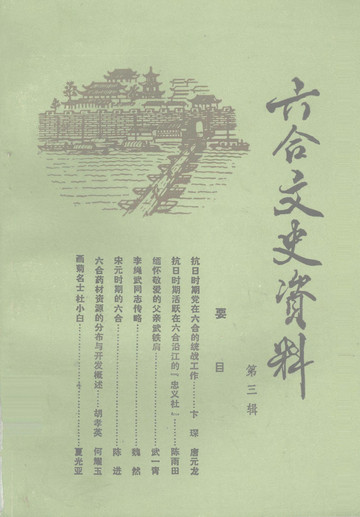 六合文史资料
第三辑
要目
抗日时期党在六合的统战工作……卞琛 唐元龙
抗日时期活跃在六合沿江的“忠义社”……陈雨田
缅怀敬爱的父亲武铁肩……武一青
李绳武同志传略……魏然
宋元时期的六合……陈进
六合药材资源的分布与开发概述……胡孝英 何耀玉
画菊名士杜小白……夏光亚